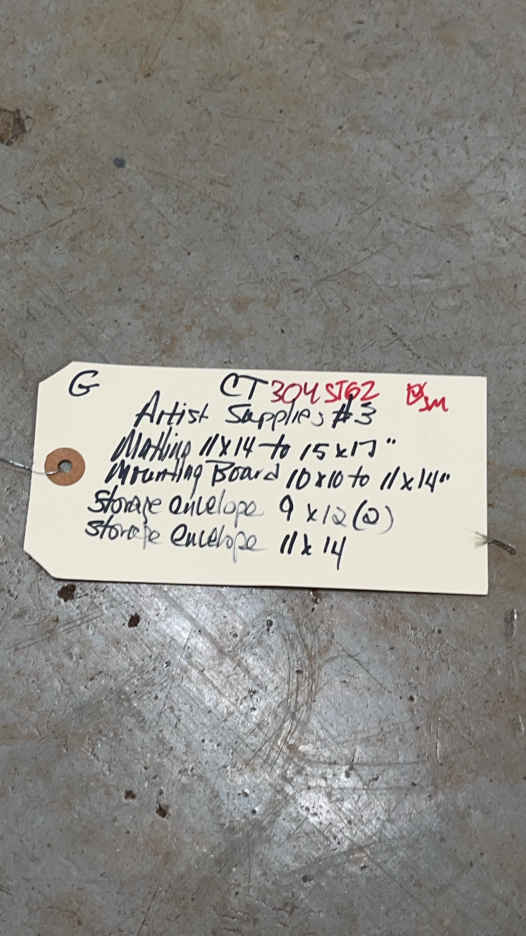 G CT 304 ST62 SM
Artist Supplies #3
Matting 11x14 to 15x17"
Mounting Board 10x10 to 11x14"
Storage envelope 9x12 (2)
Storage envelope 11x14